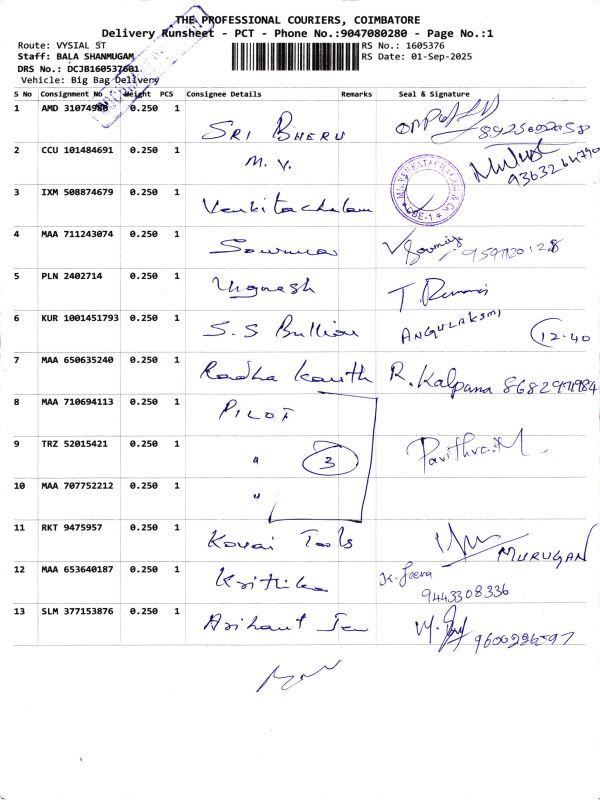 THE PROFESSIONAL COURIERS, COIMBATORE
Delivery Runsheet - PCT - Phone No.:9047080280 - Page No.:1
Route: VYSIAL ST
RS No.: 1605376
Staff: BALA SHANMUGAM
RS Date: 01-Sep-2025
DRS No.: DCJB160537601
Vehicle: Big Bag Delivery
S No Consignment No Weight PCS Consignee Details Remarks Seal & Signature
1 AMD 0.250 1 SRI BHERU
2 CCU 101484691 0.250 1 M. V.
3 IXM 508874679 0.250 1 Venkitachalam CBE-1
4 MAA 711243074 0.250 1 Sowmiya V Sowmiya
5 PLN 2402714 0.250 1 Vignesh T.
6 KUR 1001451793 0.250 1 S.S Bullion ANGULAKSMI 12-40
7 MAA 650635240 0.250 1 Radha Kanth R. Kalpana
8 MAA 710694113 0.250 1 PILOT
9 TRZ 52015421 0.250 1 " 3 Pavithra.M
10 MAA 707752212 0.250 1 "
11 RKT 9475957 0.250 1 Kovai Tools MURUGAN
12 MAA 653640187 0.250 1 Krithika K. Jeeva
9443308336
13 SLM 377153876 0.250 1 Arihant